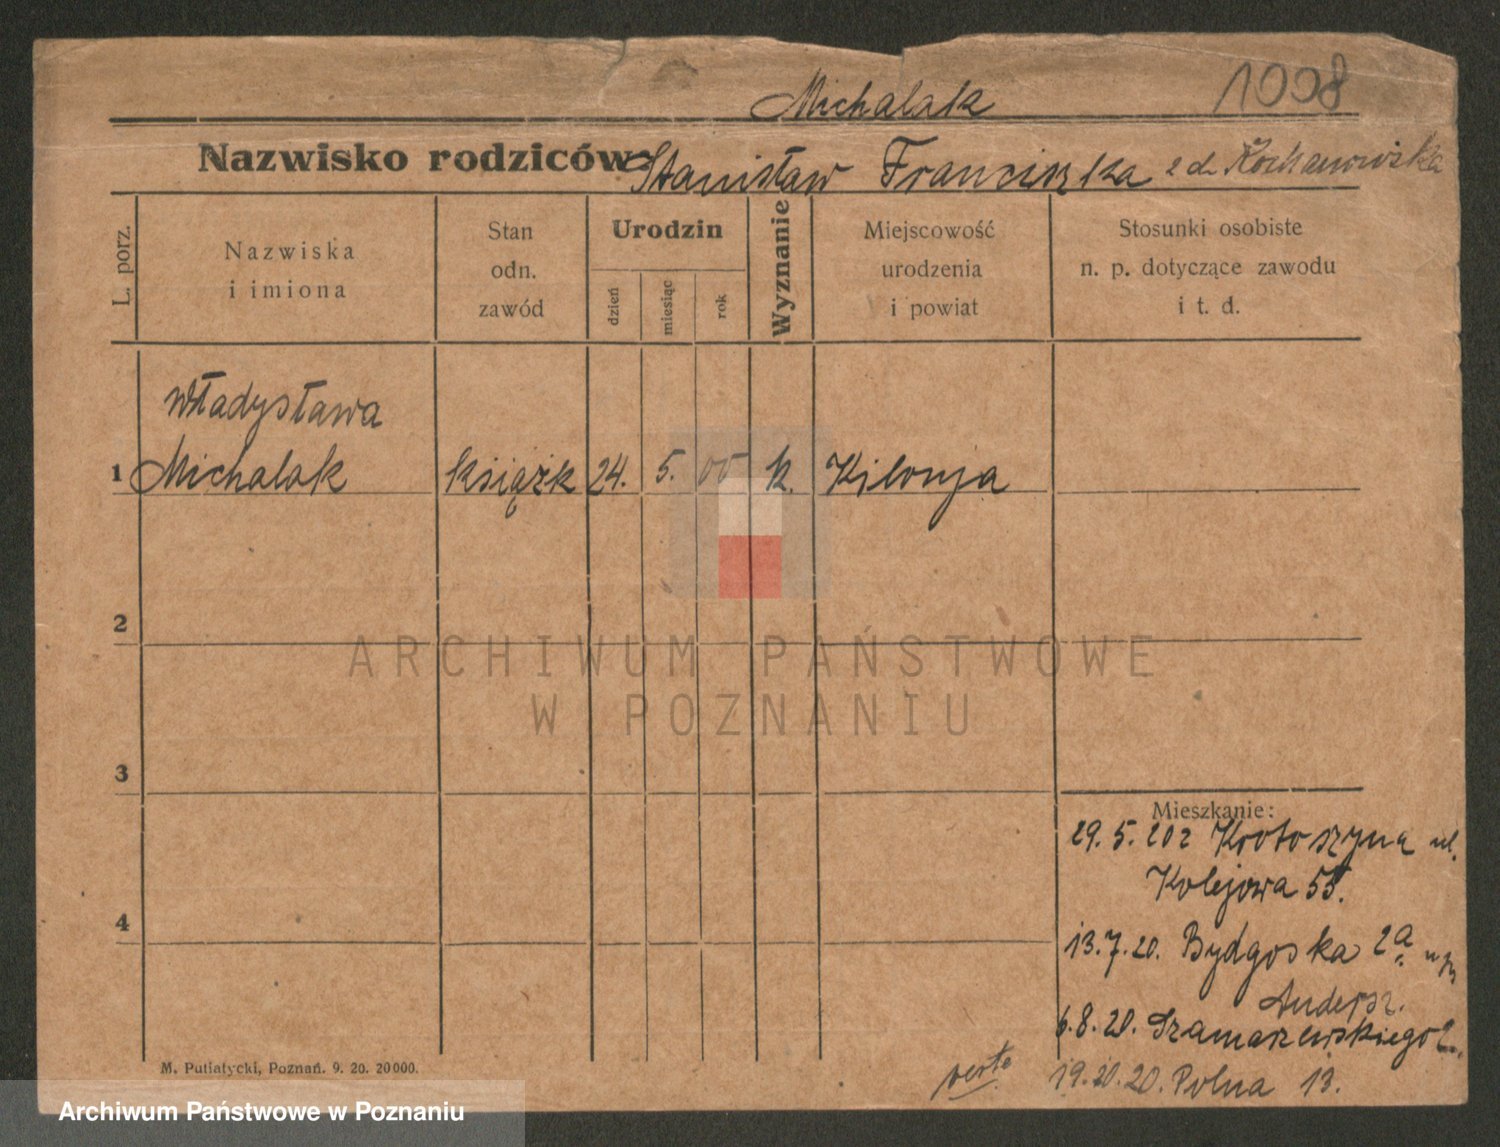 Michalak
1008
Nazwisko rodziców
Stanisław Franciszka z d. Kochanowska
L. porz.
Nazwiska
i imiona
Stan
odn.
zawód
Urodzin
dzień
miesiąc
rok
Wyznanie
Miejscowość
urodzenia
i powiat
Stosunki osobiste
n. p. dotyczące zawodu
i t. d.
Władysława
1 Michalak książk 24. 5. 00 k. Kilonja
2
ARCHIWUM PAŃSTWOWE
W POZNANIU
3
Mieszkanie:
29.5.20 z Krotoszyna ul.
Kolejowa 55.
4
13.7.20. Bydgoska 2a
Andersz.
6.8.20. Szamarzewskiego
19.10.20. Polna 13.
verte
M. Putiatycki, Poznań. 9. 20. 20 000.
Archiwum Państwowe w Poznaniu